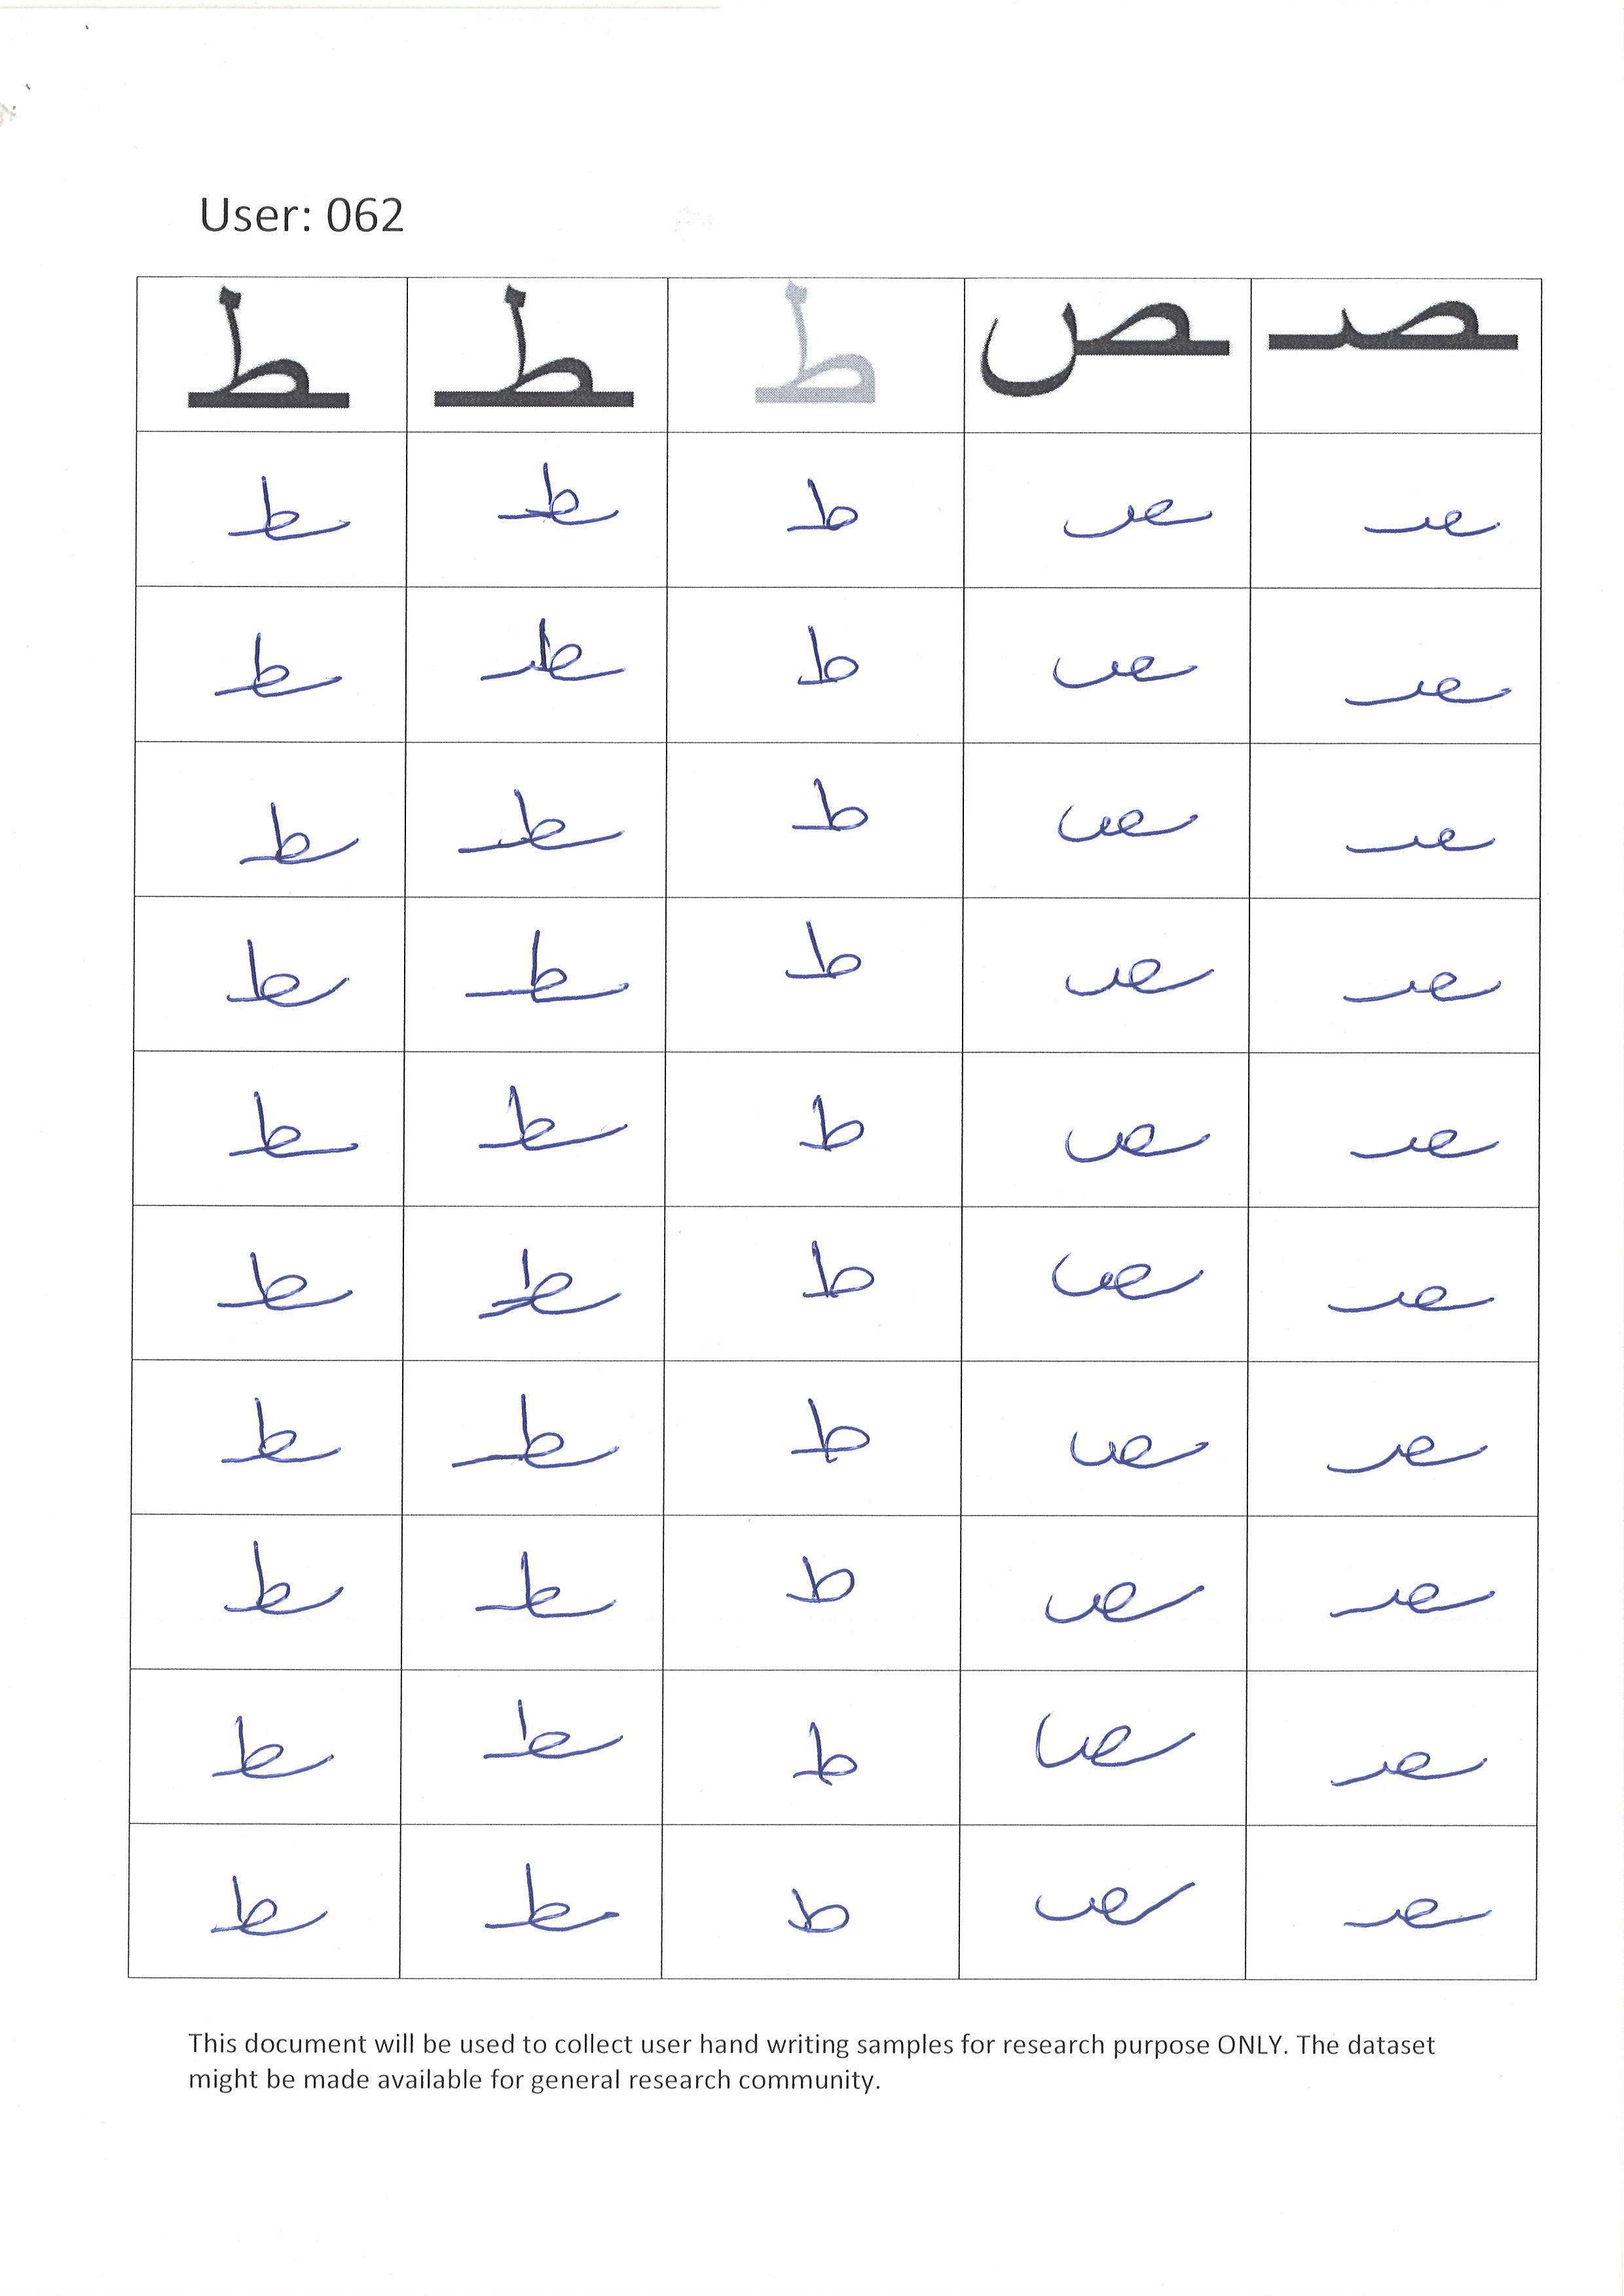 User: 062
ـط ـطـ ط ـص ـصـ
ـط ـطـ ط ـص ـصـ
ـط ـطـ ط ـص ـصـ
ـط ـطـ ط ـص ـصـ
ـط ـطـ ط ـص ـصـ
ـط ـطـ ط ـص ـصـ
ـط ـطـ ط ـص ـصـ
ـط ـطـ ط ـص ـصـ
ـط ـطـ ط ـص ـصـ
ـط ـطـ ط ـص ـصـ
ـط ـطـ ط ـص ـصـ
This document will be used to collect user hand writing samples for research purpose ONLY. The dataset
might be made available for general research community.